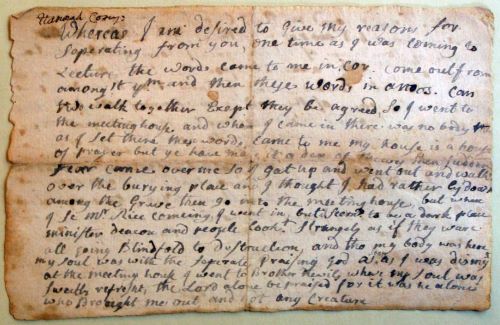 Hannah Corey:
Whereas I am desired to Give my reasons for
Seperating from you, one time as I was coming to
Lecture the words came to me in, Cor come out from
amongst ym and then these words in amos. Can
two walk together Except they be agreed, so I went to
the meetinghouse, and when I came in there was no body
as I set there these words came to me my house is a house
of prayer but ye have made it a den of theives then
fear came over me so I gat up and went out and walk
over the burying place and I thought I had rather ly down
among the Grave then go into the meeting house but when
I se Mr Rice comeing I went in, but it seem to be a dark place
minister deacon and people lookt Strangely as if they ware
all going Blindfold to distruction, and tho my body was here
my soul was with the seperate, Praising god as I was
at the meeting house I went to Brother Nevils where my soul was
sweetly refresht, the Lord alone be praised for it was he alone
who Brought me out and not any Creature